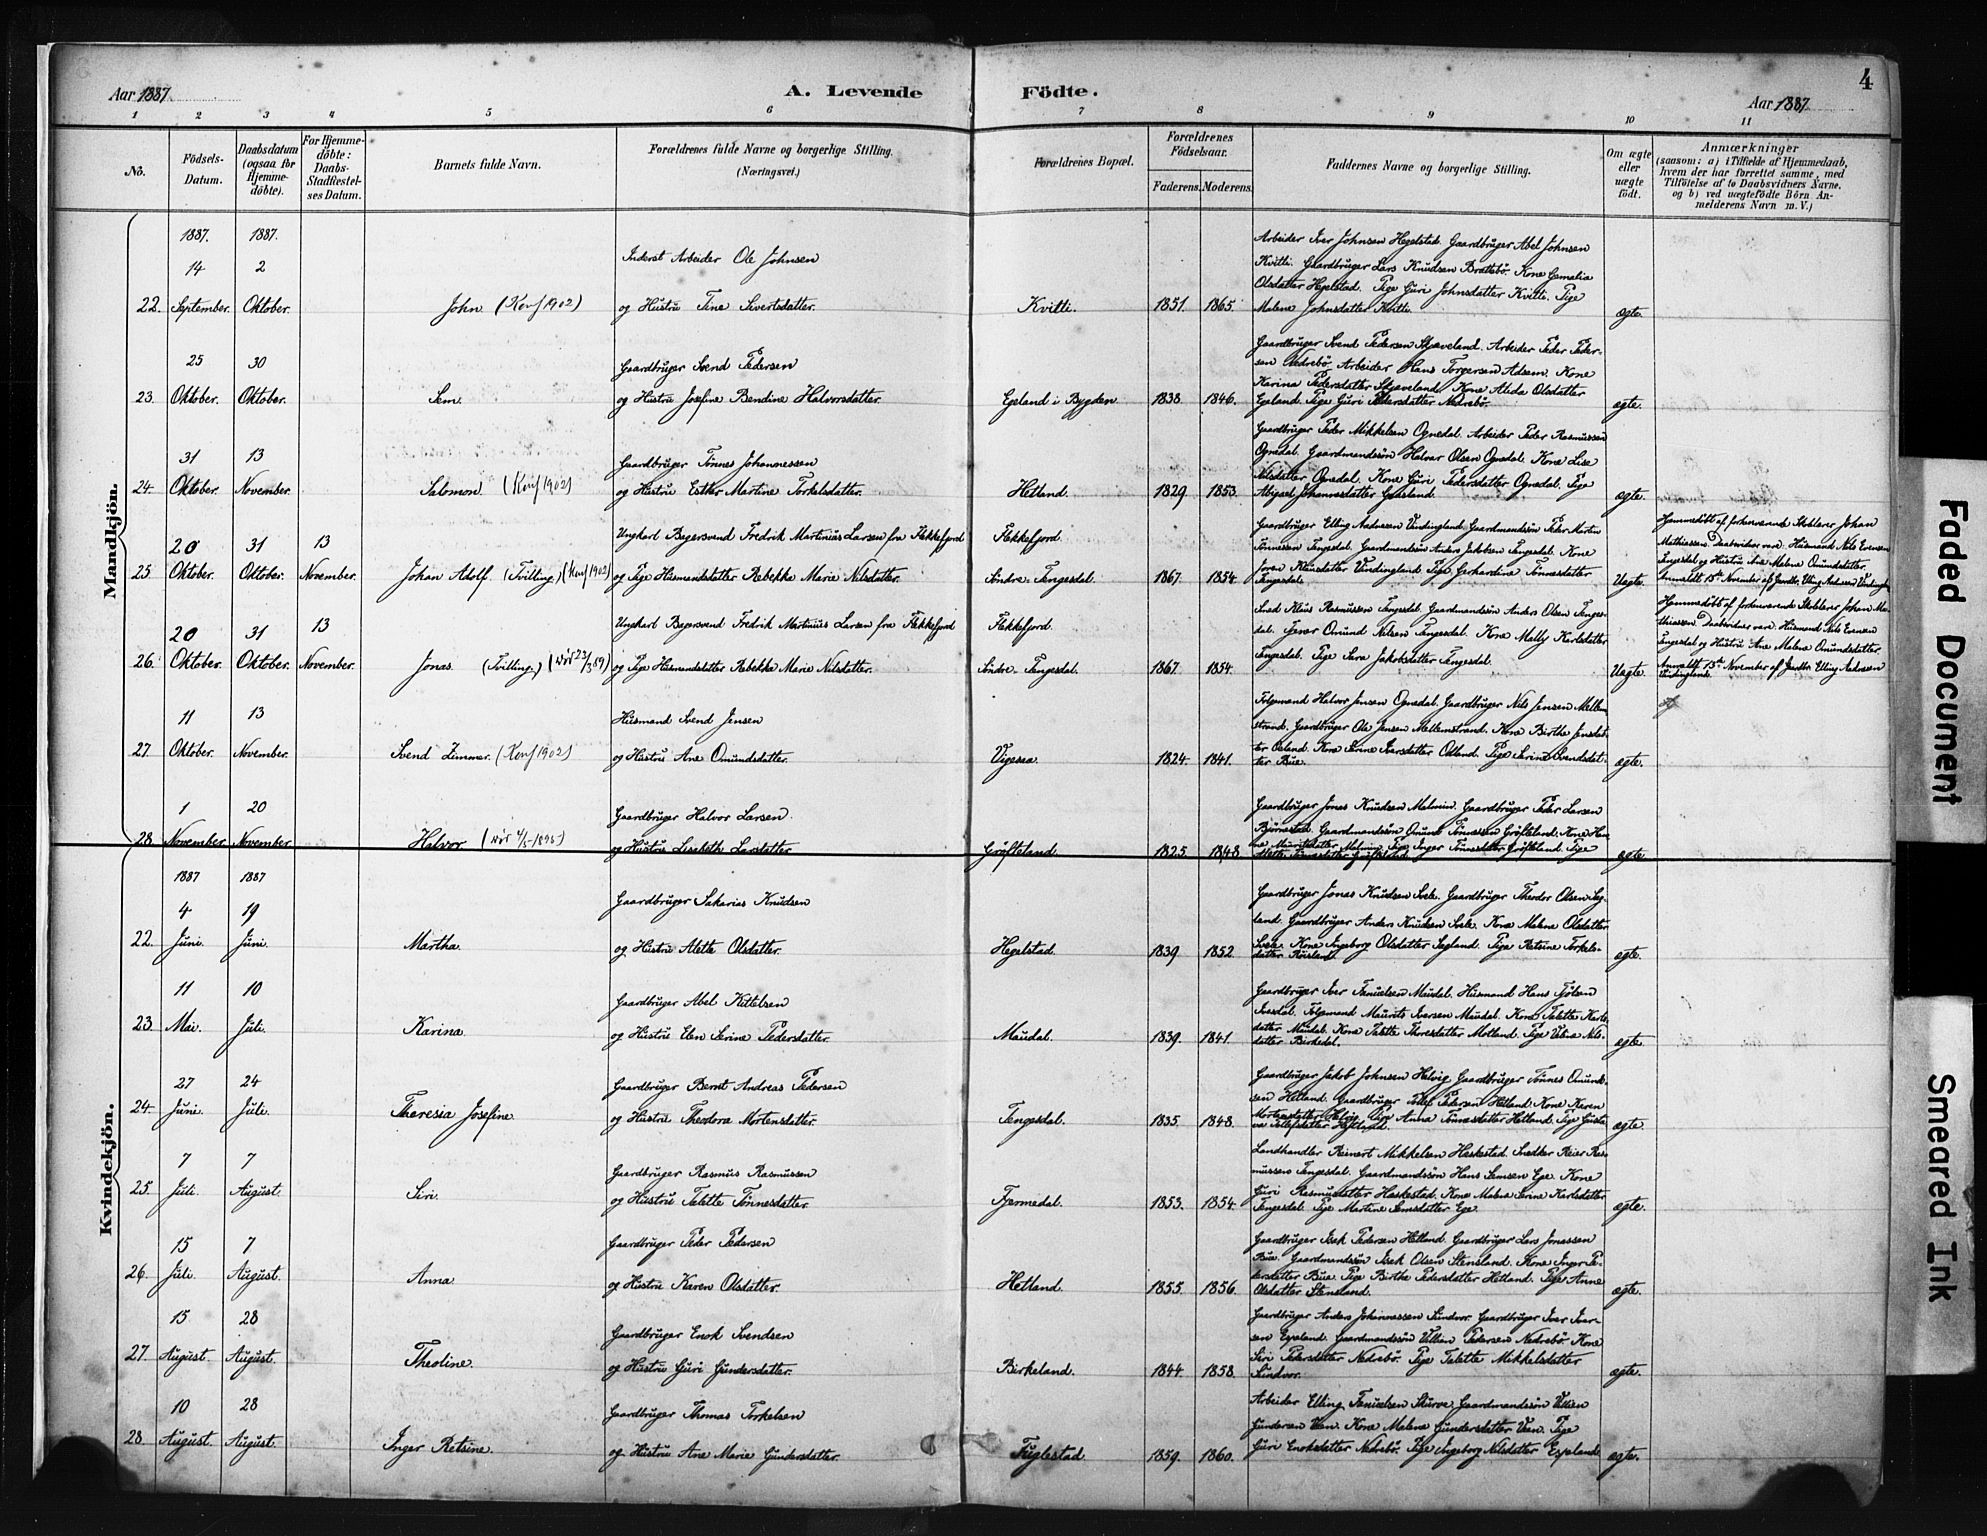 Aar 1887.
A. Levende Födte.
Aar 1887.
4
1 2 3 4 5 6 7 8 9 10 11
No.
Födsels-
Datum.
Daabsdatum
(ogsaa for
Hjemme-
döbte).
For Hjemme-
döbte:
Daabs-
Stadfæstel-
ses Datum.
Barnets fulde Navn.
Forældrenes fulde Navne og borgerlige Stilling.
(Næringsvei.)
Forældrenes Bopæl.
Forældrenes
Födselsaar.
Faderens. Moderens.
Faddernes Navne og borgerlige Stilling.
Om ægte
eller
uægte
födt.
Anmærkninger
(saasom: a) i Tilfælde af Hjemmedaab,
hvem der har forrettet samme, med
Tilföielse af to Daabsvidners Navne,
og b) ved uægtefödte Börn An-
melderens Navn m. V.)
Mandkjön.
1887. 1887.
14 2
22. September. Oktober. John (Konf 1902)
Inderst Arbeider Ole Johnsen
og Hustru Tine Sivertsdatter.
Kvitli. 1851. 1865.
Arbeider Iver Johnsen Hegelstad. Gaardbruger Abel Johnsen
Kvitli. Gaardbruger Lars Knudsen Brattebö. Kone
Olsdatter Hegelstad. Pige Guri Johnsdatter Kvitli. Pige
Malene Johnsdatter Kvitli.
ægte.
25 30
23. Oktober. Oktober. Sem.
Gaardbruger Svend Pedersen
og Hustru Josefine Bendine Halvorsdatter.
Egeland i Bygden 1838 1846.
Gaardbruger Svend Pedersen Skjæveland. Arbeider Peder Peder-
sen Nedrebö. Arbeider Hans Torgersen Kone
Karina Pedersdatter Skjæveland. Kone Alida Olsdatter
Egeland. Pige Guri Pedersdatter Nedrebö.
ægte.
31 13
24. Oktober. November. Salomon (Konf 1902)
Gaardbruger Tönnes Johannessen
og Hustru Esther Martine Torkelsdatter.
Hetland. 1829 1853.
Gaardbruger Peder Mikkelsen Ognedal. Arbeider Peder Rasmussen
Ognedal. Gaardmandssön Halvar Olsen Ognedal. Kone Lise
Nilsdatter Ognedal. Kone Guri Pedersdatter Ognedal. Pige
Abigael Johannesdatter
ægte.
20 31 13
25 Oktober. Oktober. November. Johan Adolf (Tvilling) (Konf 1902)
Ungkarl Bagersvend Fredrik Martinius Larsen fra Flekkefjord
og Pige Husmandsdatter Rebekke Marie Nilsdatter.
Flekkefjord.
Söndre-Tengesdal. 1867. 1854.
Gaardbruger Elling Aadnesen Vindingland. Gaardmandssön Peder Martin
Tönnessen Tengesdal. Gaardmandssön Anders Jakobsen Tengesdal. Kone
Klausdatter Vindingland. Pige Gerhardine Tönnesdatter
Tengesdal.
Uægte.
Hjemmedöbt af forhenværende Skolelærer Johan
Mathiassen. Daabsvidner vare: Husmand Nils Evensen
Tengesdal og Hustru Ane Malene Omundsdatter.
Anmeldt 13de November af Gaardbr. Elling Aadnesen Vindingland
20 31 13
26. Oktober. Oktober. November. Jonas (Tvilling) (död 23/3 89)
Ungkarl Bagersvend Fredrik Martinius Larsen fra Flekkefjord
og Pige Husmandsdatter Rebekke Marie Nilsdatter.
Flekkefjord.
Söndre-Tengesdal. 1867. 1854.
Klaus Rasmussen Tengesdal. Gaardmandssön Anders Olsen Tenges-
dal. Omund Nilsen Tengesdal. Kone Mally Karlsdatter
Tengesdal. Pige Sara Jakobsdatter Tengesdal.
Uægte.
Hjemmedöbt af forhenværende Skolelærer Johan Ma-
thiassen. Daabsvidner vare: Husmand Nils Evensen
Tengesdal og Hustru Ane Malene Omundsdatter.
Anmeldt 13de November af Gaardbr. Elling Aadnesen
Vindingland.
11 13
27. Oktober. November. Svend Zimmer. (Konf 1902)
Husmand Svend Jensen
og Hustru Ane Omundsdatter.
Vigesaa. 1824 1841.
Folgemand Halvor Jensen Ognedal. Gaardbruger Nils Jensen Mellem-
strand. Gaardbruger Ole Jensen Mellemstrand. Kone Birthe Jensdat-
ter Kone Serine Iversdatter Pige Serine Svendsdat-
ter Bue.
ægte.
1 20
28. November. November. Halvor (död 4/5-1895)
Gaardbruger Halvor Larsen.
og Hustru Lisabeth Larsdatter.
Gröfteland. 1825. 1848.
Gaardbruger Jonas Knudsen Malmin. Gaardbruger Peder Larsen
Bjørnestad. Gaardmandssön Omund Tönnessen Gröfteland. Kone Han-
ne Mauritsdatter Malmin. Pige Inger Tönnesdatter Gröfteland. Pige
Mette Tönnesdatter Gröfteland.
ægte.
Kvindekjön.
1887 1887
4 19
22. Juni. Juni. Martha.
Gaardbruger Sakarias Knudsen
og Hustru Alette Olsdatter.
Hegelstad. 1839. 1852.
Gaardbruger Jonas Knudsen Svele. Gaardbruger Theodor Olsen Seg-
land. Gaardbruger Anders Knudsen Svele. Kone Malene Olsdatter
Svele. Kone Ingeborg Olsdatter Segland. Pige Retsine Torkels-
datter
ægte.
11 10
23. Mai. Juli. Karina.
Gaardbruger Abel Kittelsen
og Hustru Elen Serine Pedersdatter.
Maudal. 1839. 1841.
Gaardbruger Iver Tanielsen Maudal. Husmand Hans
Ivesdal. Folgemand Maurits Iversen Maudal. Kone Talette
datter Maudal. Kone Talette Thoresdatter Motland. Pige Nils-
datter Birkedal.
ægte.
27 24
24. Juni. Juli. Theresia Josefine.
Gaardbruger Bernt Andreas Pedersen
og Hustru Theodora Mortensdatter.
Tengesdal. 1835. 1848.
Gaardbruger Jakob Johnsen Helvig. Gaardbruger Tönnes Omund-
sen Hetland. Gaardbruger Tollef Pedersen Hetland. Kone Karen
Mortensdatter Helvig. Pige Anna Tönnesdatter Hetland. Pige Gusta-
va Tollefsdatter Hetland.
ægte.
7 7
25. Juli. August. Siri.
Gaardbruger Rasmus Rasmussen
og Hustru Talette Tönnesdatter.
Fjermedal. 1853. 1854.
Landhandler Reinert Mikkelsen Haskestad. Snedker Reier Ras-
mussen Tengesdal. Gaardmandssön Hans Semsen Ege. Kone
Guri Rasmusdatter Haskestad. Kone Malena Serine Karlsdatter
Tengesdal. Pige Martine Semsdatter Ege.
ægte.
15 7
26. Juli. August. Anna.
Gaardbruger Peder Pedersen
og Hustru Karen Olsdatter.
Hetland. 1855 1856.
Gaardbruger Isak Pedersen Hetland. Gaardbruger Lars Jonassen
Bue. Gaardmandssön Isak Olsen Stensland. Kone Inger Pe-
dersdatter Bue. Pige Birthe Pedersdatter Hetland. Pige Anne
Olsdatter Stensland.
ægte.
15 28
27. August. August. Theoline.
Gaardbruger Enok Svendsen
og Hustru Guri Gundersdatter.
Birkeland. 1844. 1858.
Gaardbruger Anders Johannessen Sundvor. Gaardbruger Iver Iver-
sen Espeland. Gaardmandssön Villien Pedersen Nedrebö. Kone
Siri Pedersdatter Nedrebö. Pige Talette Mikkelsdatter
Sundvor.
ægte.
10 28
28. August. August. Inger Retsine.
Gaardbruger Thomas Torkelsen
og Hustru Ane Marie Gundersdatter.
Fuglestad. 1859. 1860.
Arbeider Elling Tanielsen Skurve. Gaardmandssön Villien
Gundersen Veen. Kone Malene Gundersdatter Veen. Pige
Guri Enoksdatter Nedrebö. Pige Ingeborg Nilsdatter Espeland.
ægte.
Faded Document
Smeared Ink